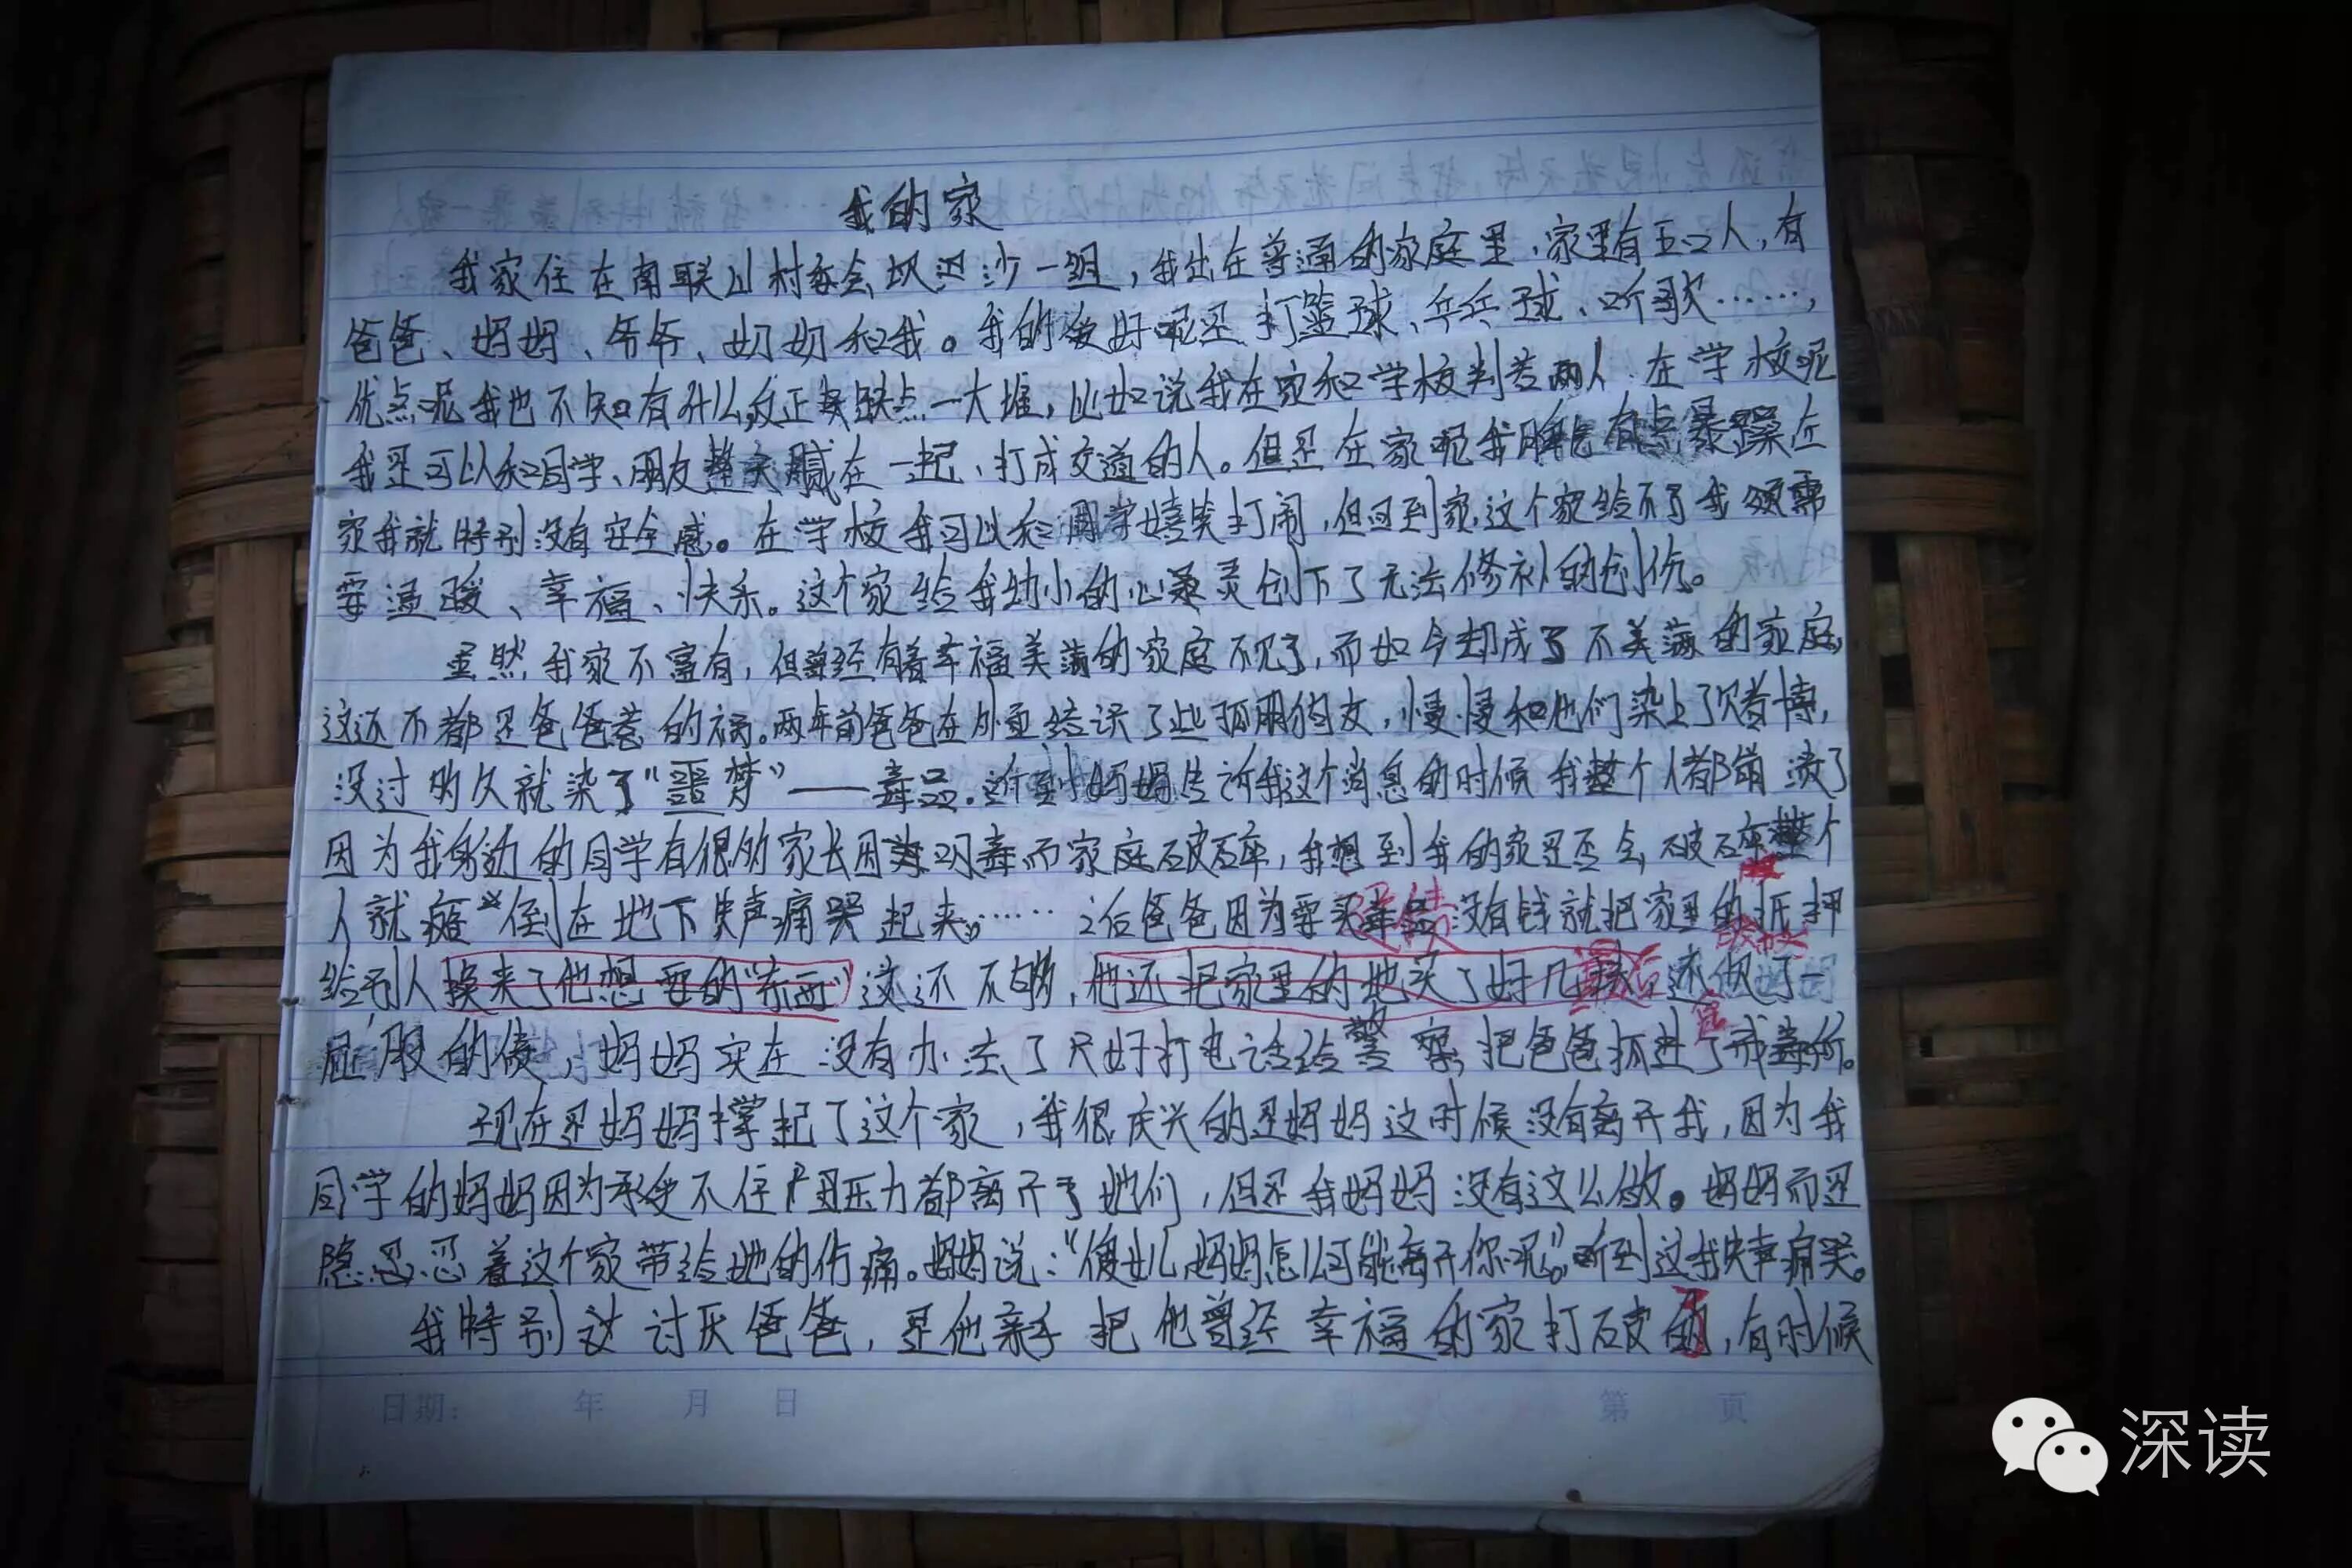 我的家
我家住在南联山村委会坝过沙一组，我出在普通的家庭里，家里有五口人，有
爸爸、妈妈、爷爷、奶奶和我。我的爱好呢是打篮球、乒乓球、听歌……，
优点呢我也不知有什么，反正缺点一大堆，比如说我在家和学校判若两人，在学校呢
我是可以和同学、朋友整天腻在一起、打成交道的人。但是在家呢我脾气有点暴躁在
家我就特别没有安全感。在学校我可以和同学嬉笑打闹，但回到家，这个家给不了我须需
要温暖、幸福、快乐。这个家给我幼小的心灵创下了无法修补的创伤。
虽然我家不富有，但曾经有着幸福美满的家庭不见了，而如今却成了不美满的家庭，
这还不都是爸爸惹的祸。两年前爸爸在外面结识了些狐朋狗友，慢慢和他们染上了赌博，
没过多久就染了“噩梦”——毒品。听到妈妈告诉我这个消息的时候我整个人都崩溃了
因为我身边的同学有很多家长因为吸毒而家庭破碎，我想到我的家是否会破碎整个
人就瘫倒在地下失声痛哭起来。…… 之后爸爸因为要买毒品没有钱就把家里的抵押
给别人换来了他想要的“东西”这还不够，他还把家里的地买了好几块还做了一
屁股的债，妈妈实在没有办法了只好打电话给警察把爸爸抓进了戒毒所。
现在是妈妈撑起了这个家，我很庆兴的是妈妈这时候没有离开我，因为我
同学的妈妈因为承受不住压力都离开了她们，但是我妈妈没有这么做。妈妈而是
隐忍忍着这个家带给她的伤痛。妈妈说：“傻女儿妈妈怎么可能离开你呢”。听到这我失声痛哭。
我特别讨厌爸爸，是他亲手把他曾经幸福的家打破的，有时候
日期： 年 月 日 第 页
深读